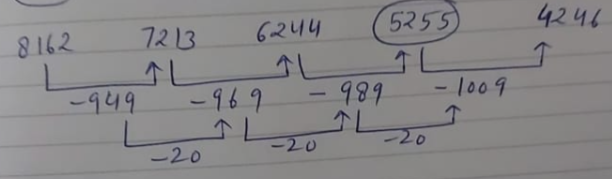 8162 7213 6244 5255 4246
-949 -969 -989 -1009
-20 -20 -20